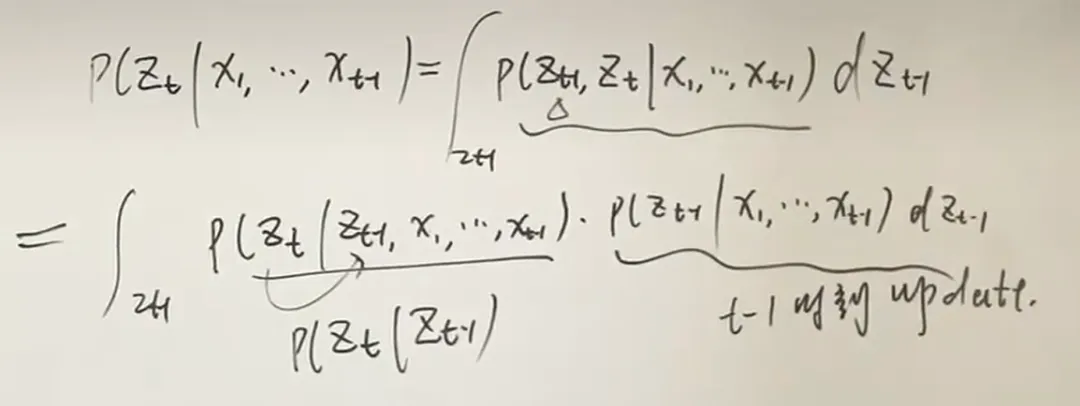 P(Z_t | x_1, ..., x_{t-1}) = ∫_{z_{t-1}} P(Z_{t-1}, Z_t | x_1, ..., x_{t-1}) d Z_{t-1}
△
= ∫_{z_{t-1}} P(Z_t | Z_{t-1}, x_1, ..., x_{t-1}) · P(Z_{t-1} | x_1, ..., x_{t-1}) d Z_{t-1}
P(Z_t | Z_{t-1})
t-1 时刻 update.